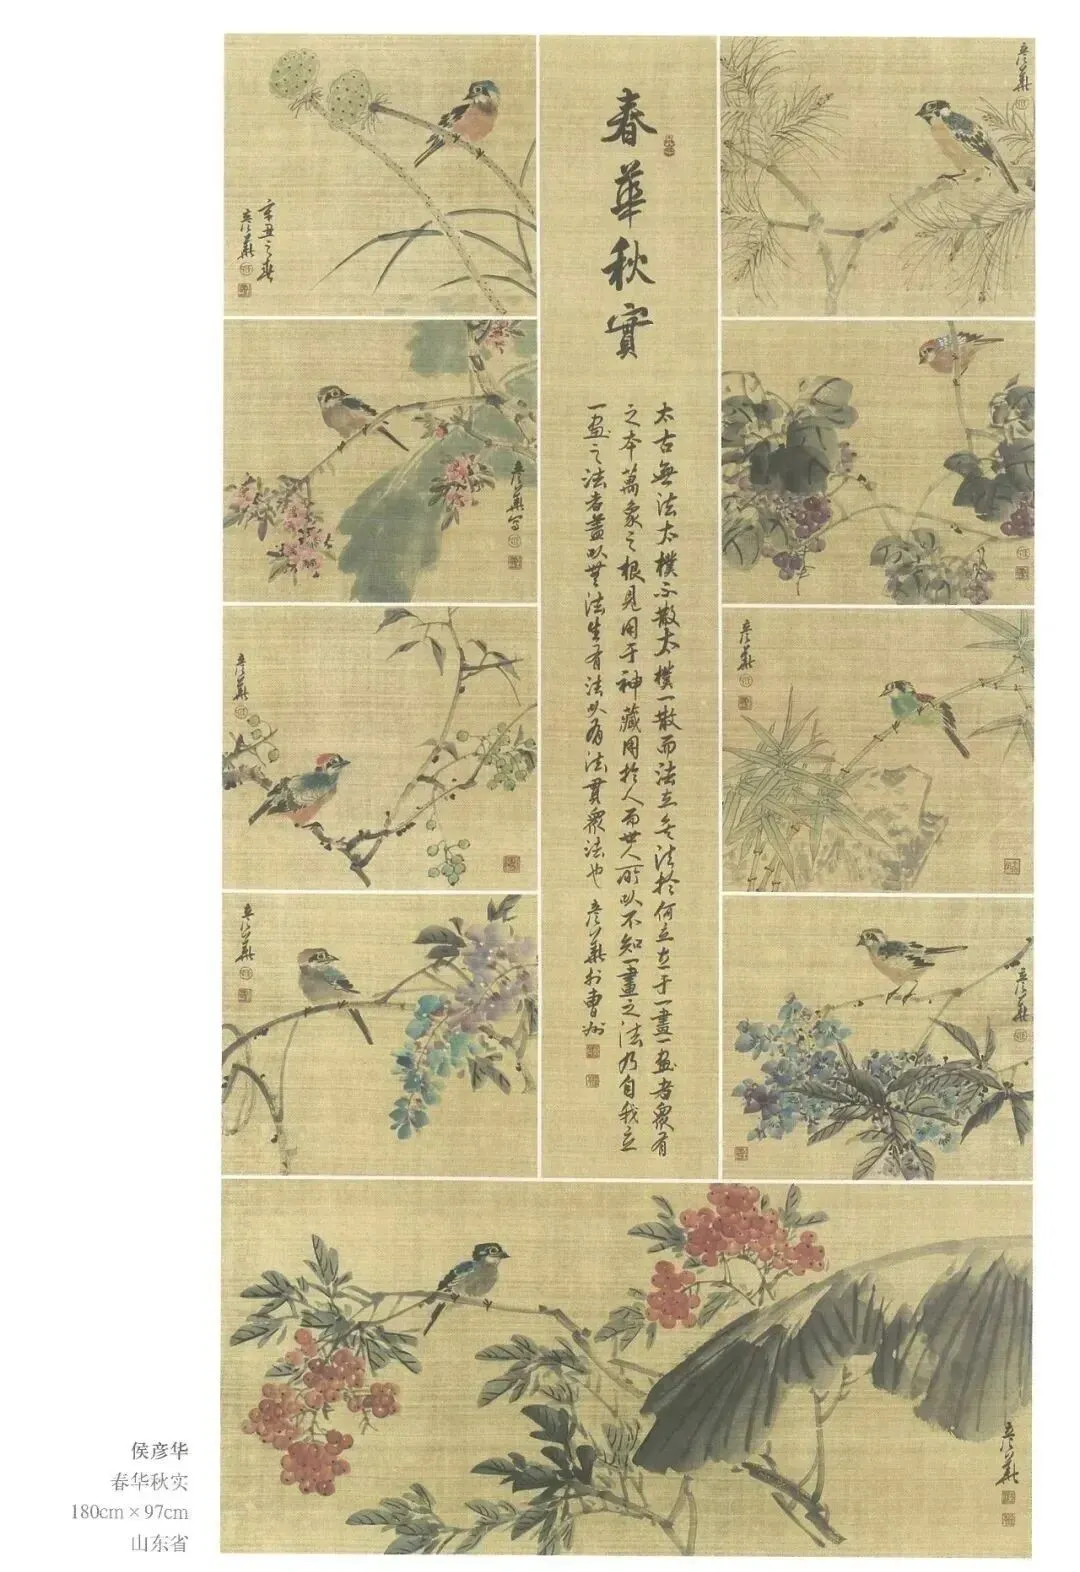 春華秋實
太古無法太樸不散太樸一散而法立矣法於何立立于一畫一画者衆有
之本萬象之根見用于神藏用於人而世人所以不知一畫之法乃自我立
一画之法者蓋以無法生有法以有法貫衆法也 彥華於曹州
辛丑之春
彥華
彥華
彥華写
彥華
彥華
彥華
彥華
彥華
侯彦华
春华秋实
180cm×97cm
山东省